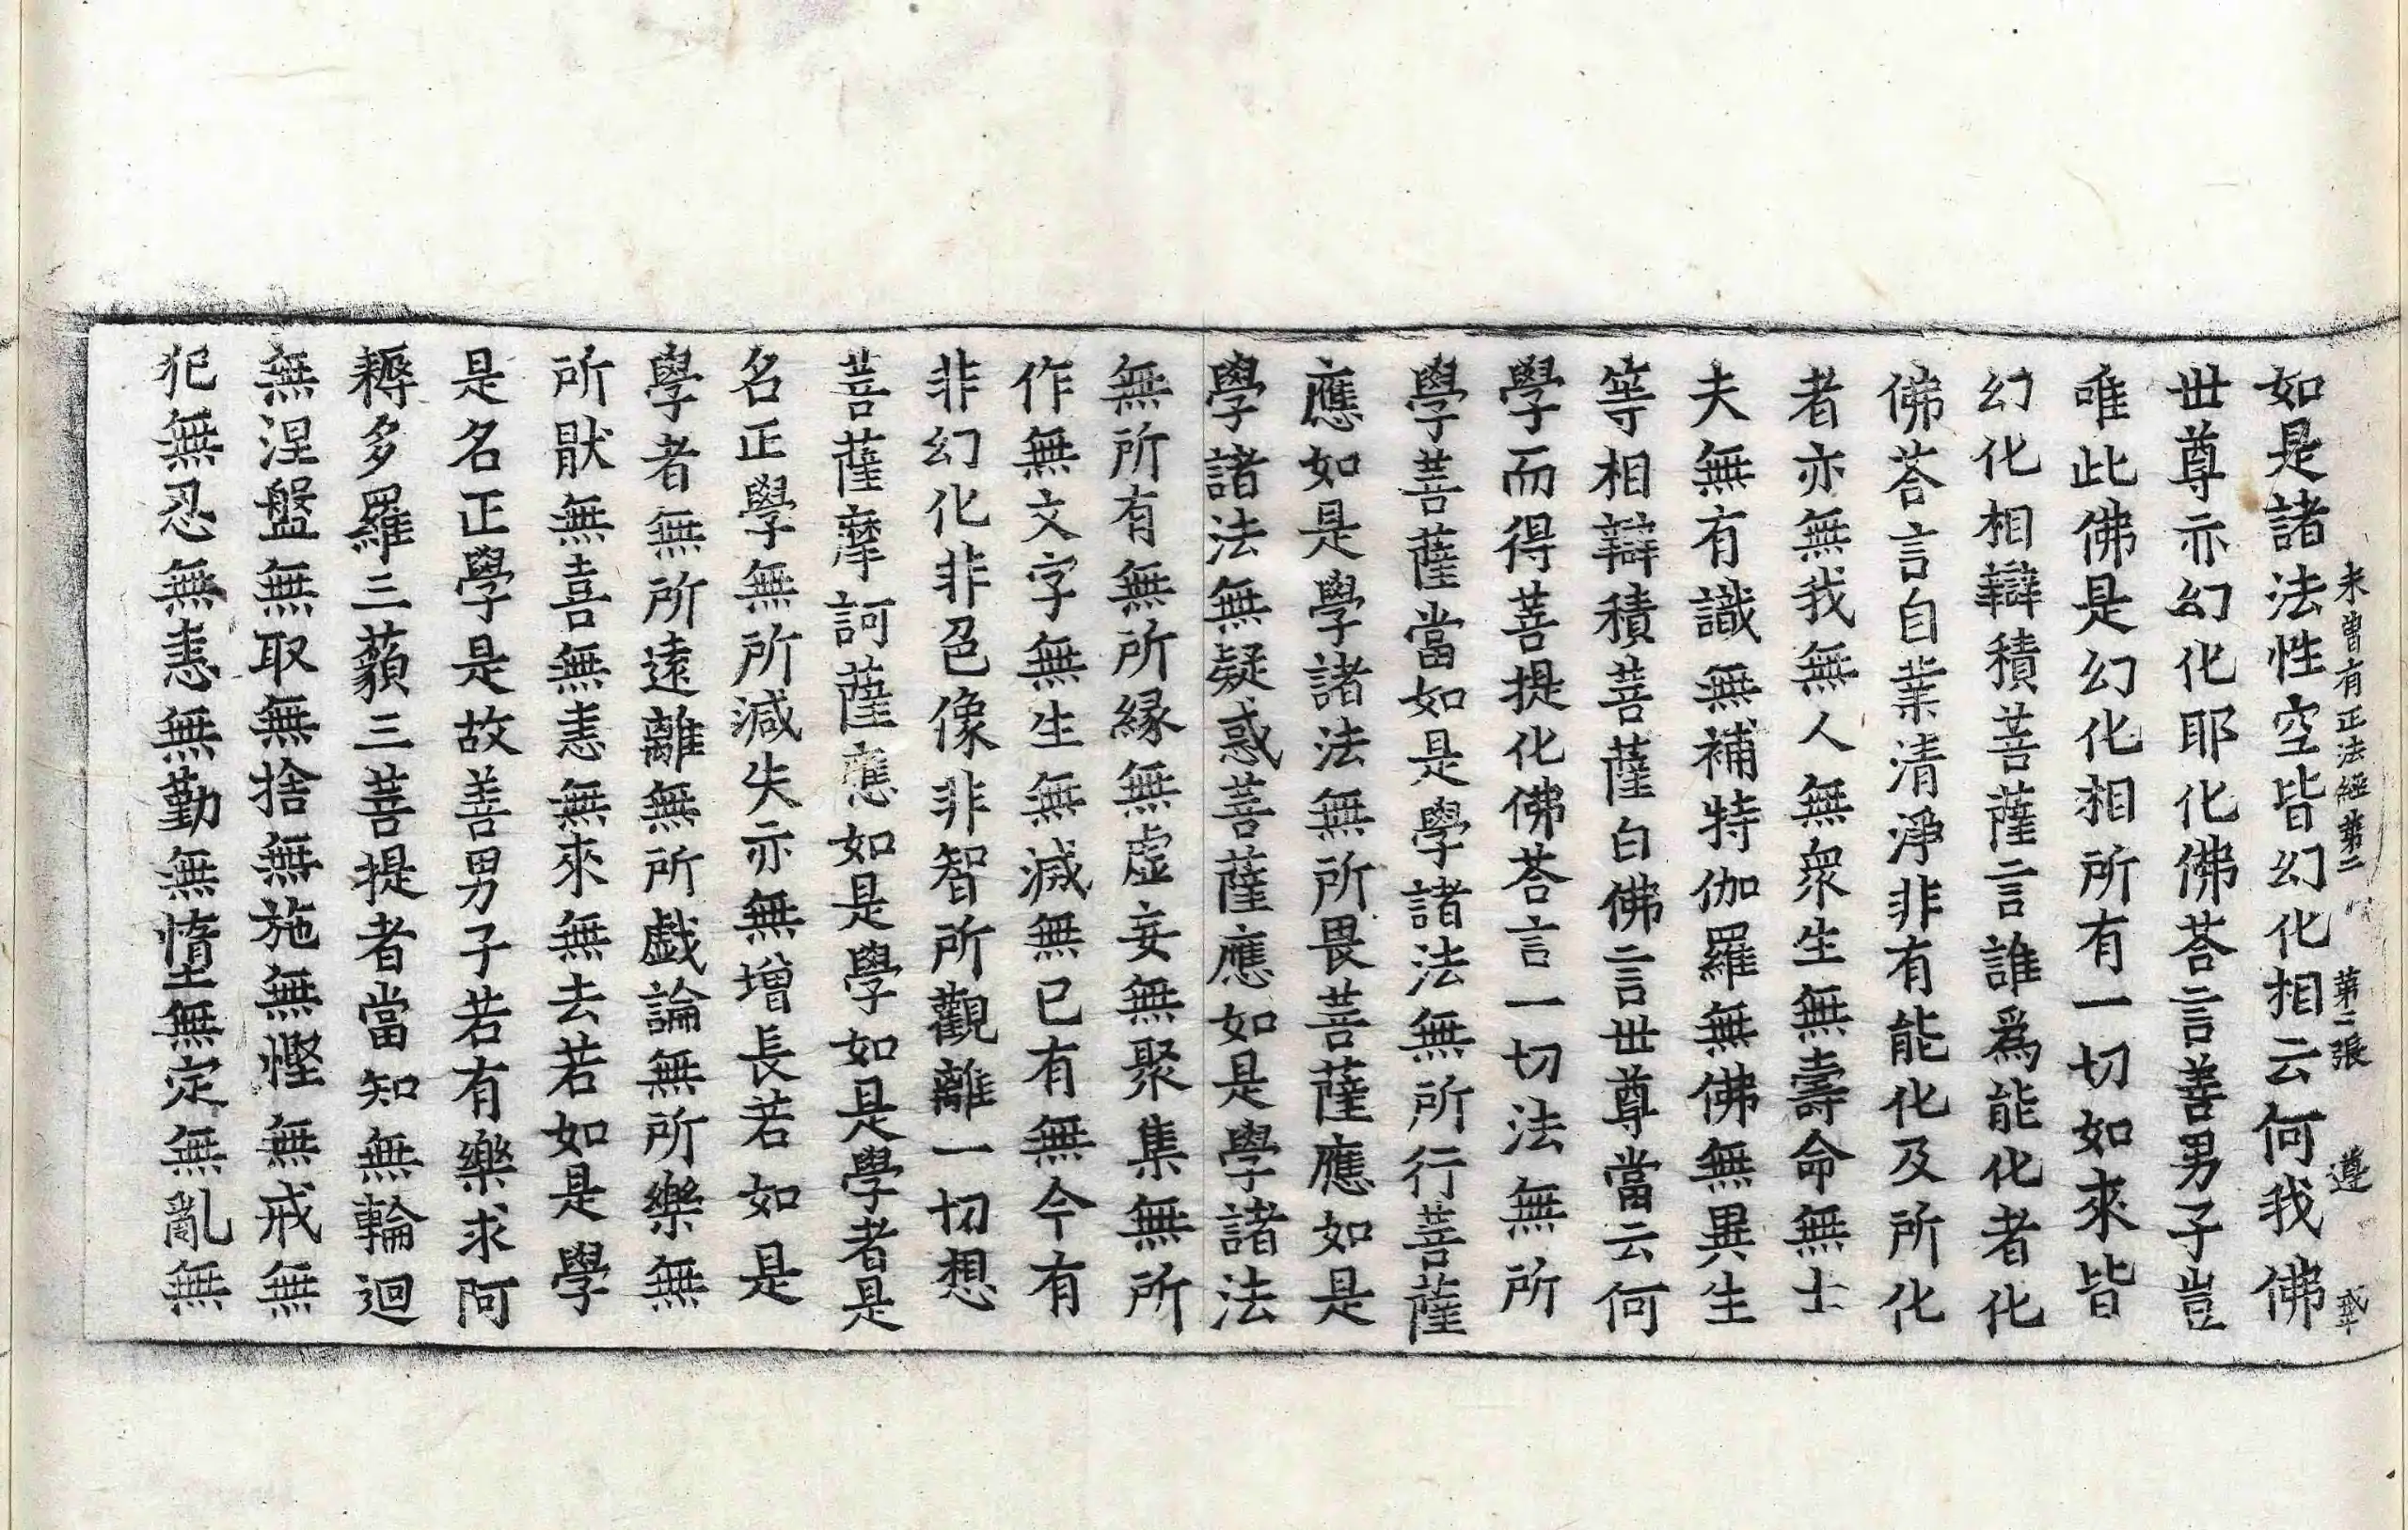 未曾有正法經第二 第二張 遵
如是諸法性空皆幻化相云何我佛
世尊亦幻化耶化佛荅言善男子豈
唯此佛是幻化相所有一切如來皆
幻化相辯積菩薩言誰爲能化者化
佛荅言自業清淨非有能化及所化
者亦無我無人無衆生無壽命無士
夫無有識無補特伽羅無佛無異生
等相辯積菩薩白佛言世尊當云何
學而得菩提化佛荅言一切法無所
學菩薩當如是學諸法無所行菩薩
應如是學諸法無所畏菩薩應如是
學諸法無疑惑菩薩應如是學諸法
無所有無所緣無虛妄無聚集無所
作無文字無生無滅無已有無今有
非幻化非色像非智所觀離一切想
菩薩摩訶薩應如是學如是學者是
名正學無所減失亦無增長若如是
學者無所遠離無所戲論無所樂無
所猒無喜無恚無來無去若如是學
是名正學是故善男子若有樂求阿
耨多羅三藐三菩提者當知無輪迴
無涅盤無取無捨無施無慳無戒無
犯無忍無恚無勤無墯無定無亂無